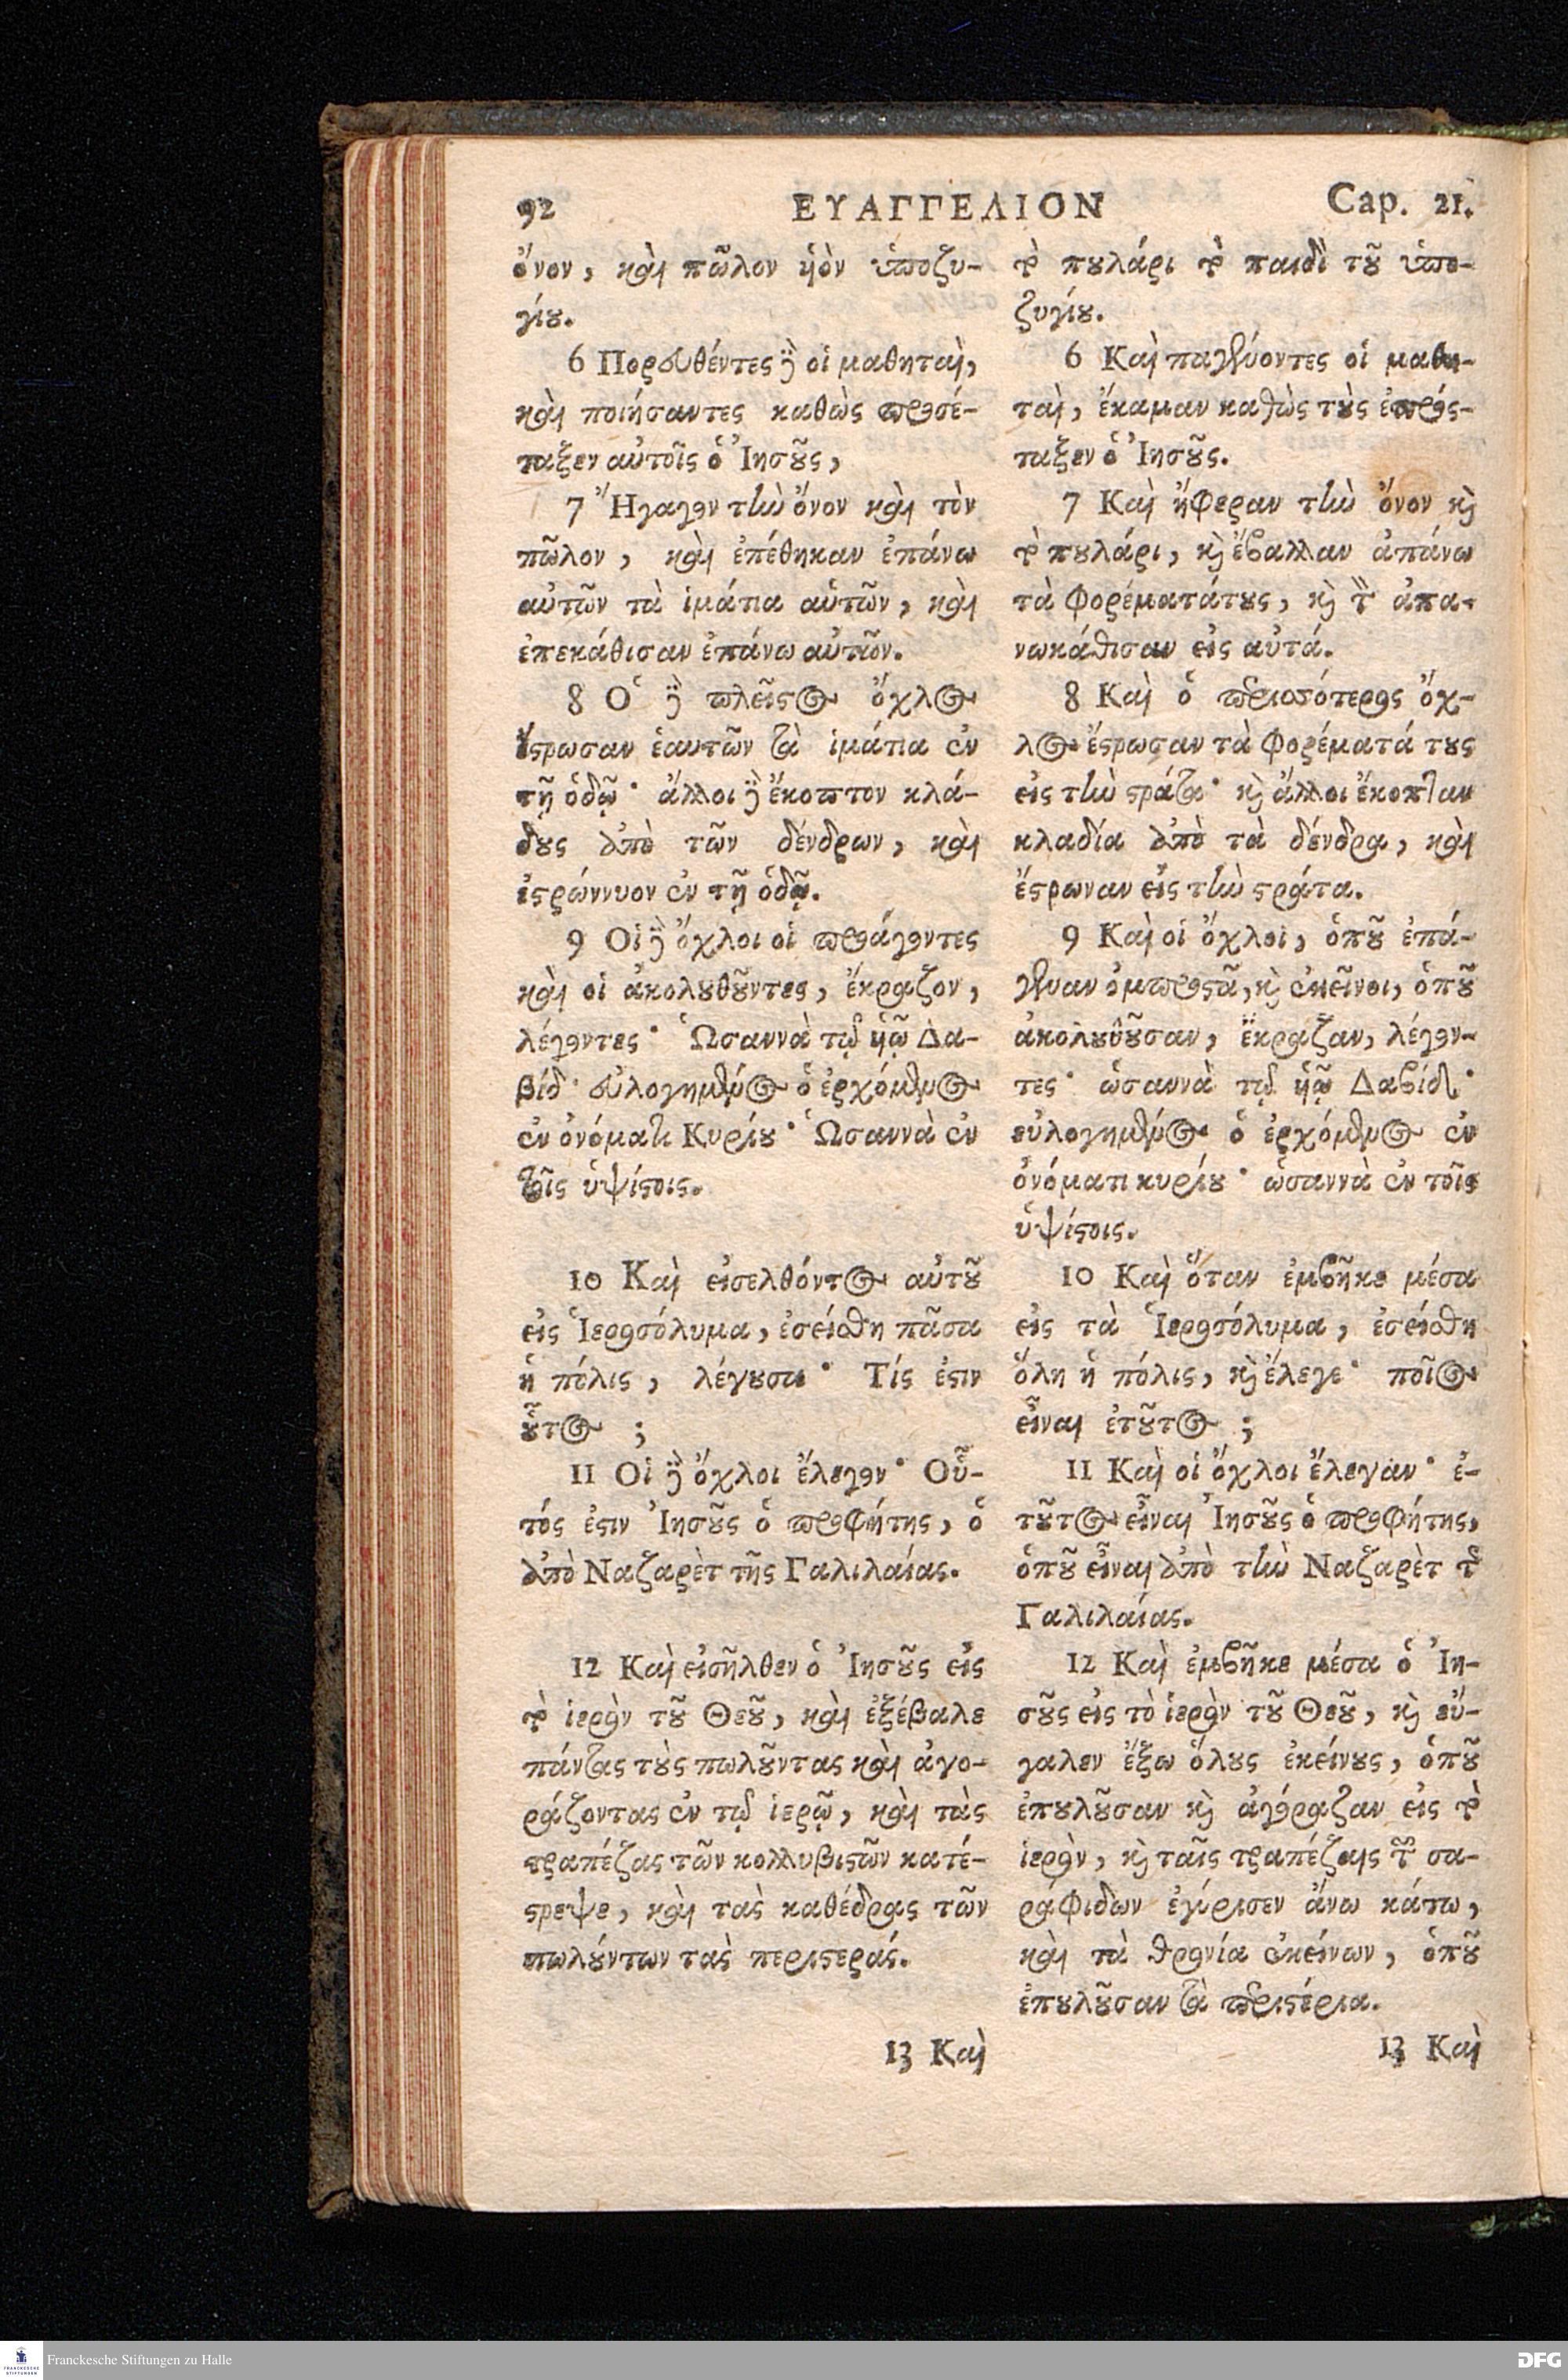 92 ΕΥΑΓΓΕΛΙΟΝ Cap. 21.
ὄνον, καὶ πῶλον ἡὸν ὑποζυ-
γίȣ.
6 Πορευθέντες δὲ οἱ μαθηταὶ,
καὶ ποιήσαντες καθὼς προσέ-
ταξεν αὐτοῖς ὁ Ἰησȣ͂ς,
7 Ἤγαγον τὴν ὄνον καὶ τὸν
πῶλον, καὶ ἐπέθηκαν ἐπάνω
αὐτῶν τὰ ἱμάτια αὑτῶν, καὶ
ἐπεκάθισαν ἐπάνω αὐτῶν.
8 Ὁ δὲ πλεῖϛος ὄχλος
ἔϛρωσαν ἑαυτῶν τὰ ἱμάτια ἐν
τῇ ὁδῷ· ἄλλοι δὲ ἔκοπτον κλά-
δȣς ἀπὸ τῶν δένδρων, καὶ
ἐϛρώννυον ἐν τῇ ὁδῷ.
9 Οἱ δὲ ὄχλοι οἱ προάγοντες
καὶ οἱ ἀκολȣθȣ͂ντες, ἔκραζον,
λέγοντες· Ὡσαννὰ τῷ ἡῷ Δα-
βίδ· εὐλογημένος ὁ ἐρχόμενος
ἐν ὀνόματι Κυρίȣ· Ὡσαννὰ ἐν
τοῖς ὑψίϛοις.
10 Καὶ εἰσελθόντος αὐτȣ͂
εἰς Ἱεροσόλυμα, ἐσείσθη πᾶσα
ἡ πόλις, λέγȣσα· Τίς ἐϛιν
ȣ͗͂τος ;
11 Οἱ δὲ ὄχλοι ἔλεγον· Οὗ-
τός ἐϛιν Ἰησȣ͂ς ὁ προφήτης, ὁ
ἀπὸ Ναζαρὲτ τῆς Γαλιλαίας.
12 Καὶ εἰσῆλθεν ὁ Ἰησȣ͂ς εἰς
τὸ ἱερὸν τȣ͂ Θεȣ͂, καὶ ἐξέβαλε
πάντας τȣ̀ς πωλȣ͂ντας καὶ ἀγο-
ράζοντας ἐν τῷ ἱερῷ, καὶ τὰς
τραπέζας τῶν κολλυβιϛῶν κατέ-
ϛρεψε, καὶ τὰς καθέδρας τῶν
πωλȣ́ντων τὰς περιϛεράς.
13 Καὶ
τὸ πȣλάρι τὸ παιδὶ τȣ͂ ὑπο-
ζυγίȣ.
6 Καὶ παγένοντες οἱ μαθη-
ταὶ, ἔκαμαν καθὼς τȣ̀ς ἐπρός-
ταξεν ὁ Ἰησȣ͂ς.
7 Καὶ ἤφεραν τὴν ὄνον κὶ
τὸ πȣλάρι, κὶ ἔβαλλαν ἀπάνω
τὰ φορέματάτȣς, κὶ τ̀ ἀπα-
νωκάθισαν εἰς αὐτά.
8 Καὶ ὁ περιοσότερος ὄχ-
λος ἔϛρωσαν τὰ φορέματά τȣς
εἰς τὴν ϛράτα· κὶ ἄλλοι ἔκοπταν
κλαδία ἀπὸ τὰ δένδρα, καὶ
ἔϛρωναν εἰς τὴν ϛράτα.
9 Καὶ οἱ ὄχλοι, ὁπȣ͂ ἐπά-
γεναν ὀμπροϛᾶ, κὶ ἐκεῖνοι, ὁπȣ͂
ἀκολȣθȣ͂σαν, ἔκραζαν, λέγον-
τες· ὡσαννὰ τῷ ἡῷ Δαβίδ·
εὐλογημένος ὁ ἐρχόμενος ἐν
ὀνόματι κυρίȣ· ὡσαννὰ ἐν τοῖς
ὑψίϛοις.
10 Καὶ ὅταν ἐμβῆκε μέσα
εἰς τὰ Ἱεροσόλυμα, ἐσείσθη
ὅλη ἡ πόλις, κὶ ἔλεγε· ποῖος
εἶναι ἐτȣ͂τος ;
11 Καὶ οἱ ὄχλοι ἔλεγαν· ἐ-
τȣ͂τος εἶναι Ἰησȣ͂ς ὁ προφήτης,
ὁπȣ͂ εἶναι ἀπὸ τὴν Ναζαρὲτ τῆς
Γαλιλαίας.
12 Καὶ ἐμβῆκε μέσα ὁ Ἰη-
σȣ͂ς εἰς τὸ ἱερὸν τȣ͂ Θεȣ͂, κὶ εὔ-
γαλεν ἔξω ὅλȣς ἐκείνȣς, ὁπȣ͂
ἐπȣλȣ͂σαν κὶ ἀγόραζαν εἰς τὸ
ἱερὸν, κὶ ταῖς τραπέζαις τῶν σα-
ράφιδων ἐγύρισεν ἄνω κάτω,
καὶ τὰ θρονία ἐκείνων, ὁπȣ͂
ἐπȣλȣ͂σαν τὰ περιϛέρια.
13 Καὶ
FRANCKESCHE STIFTUNGEN
Franckesche Stiftungen zu Halle
DFG